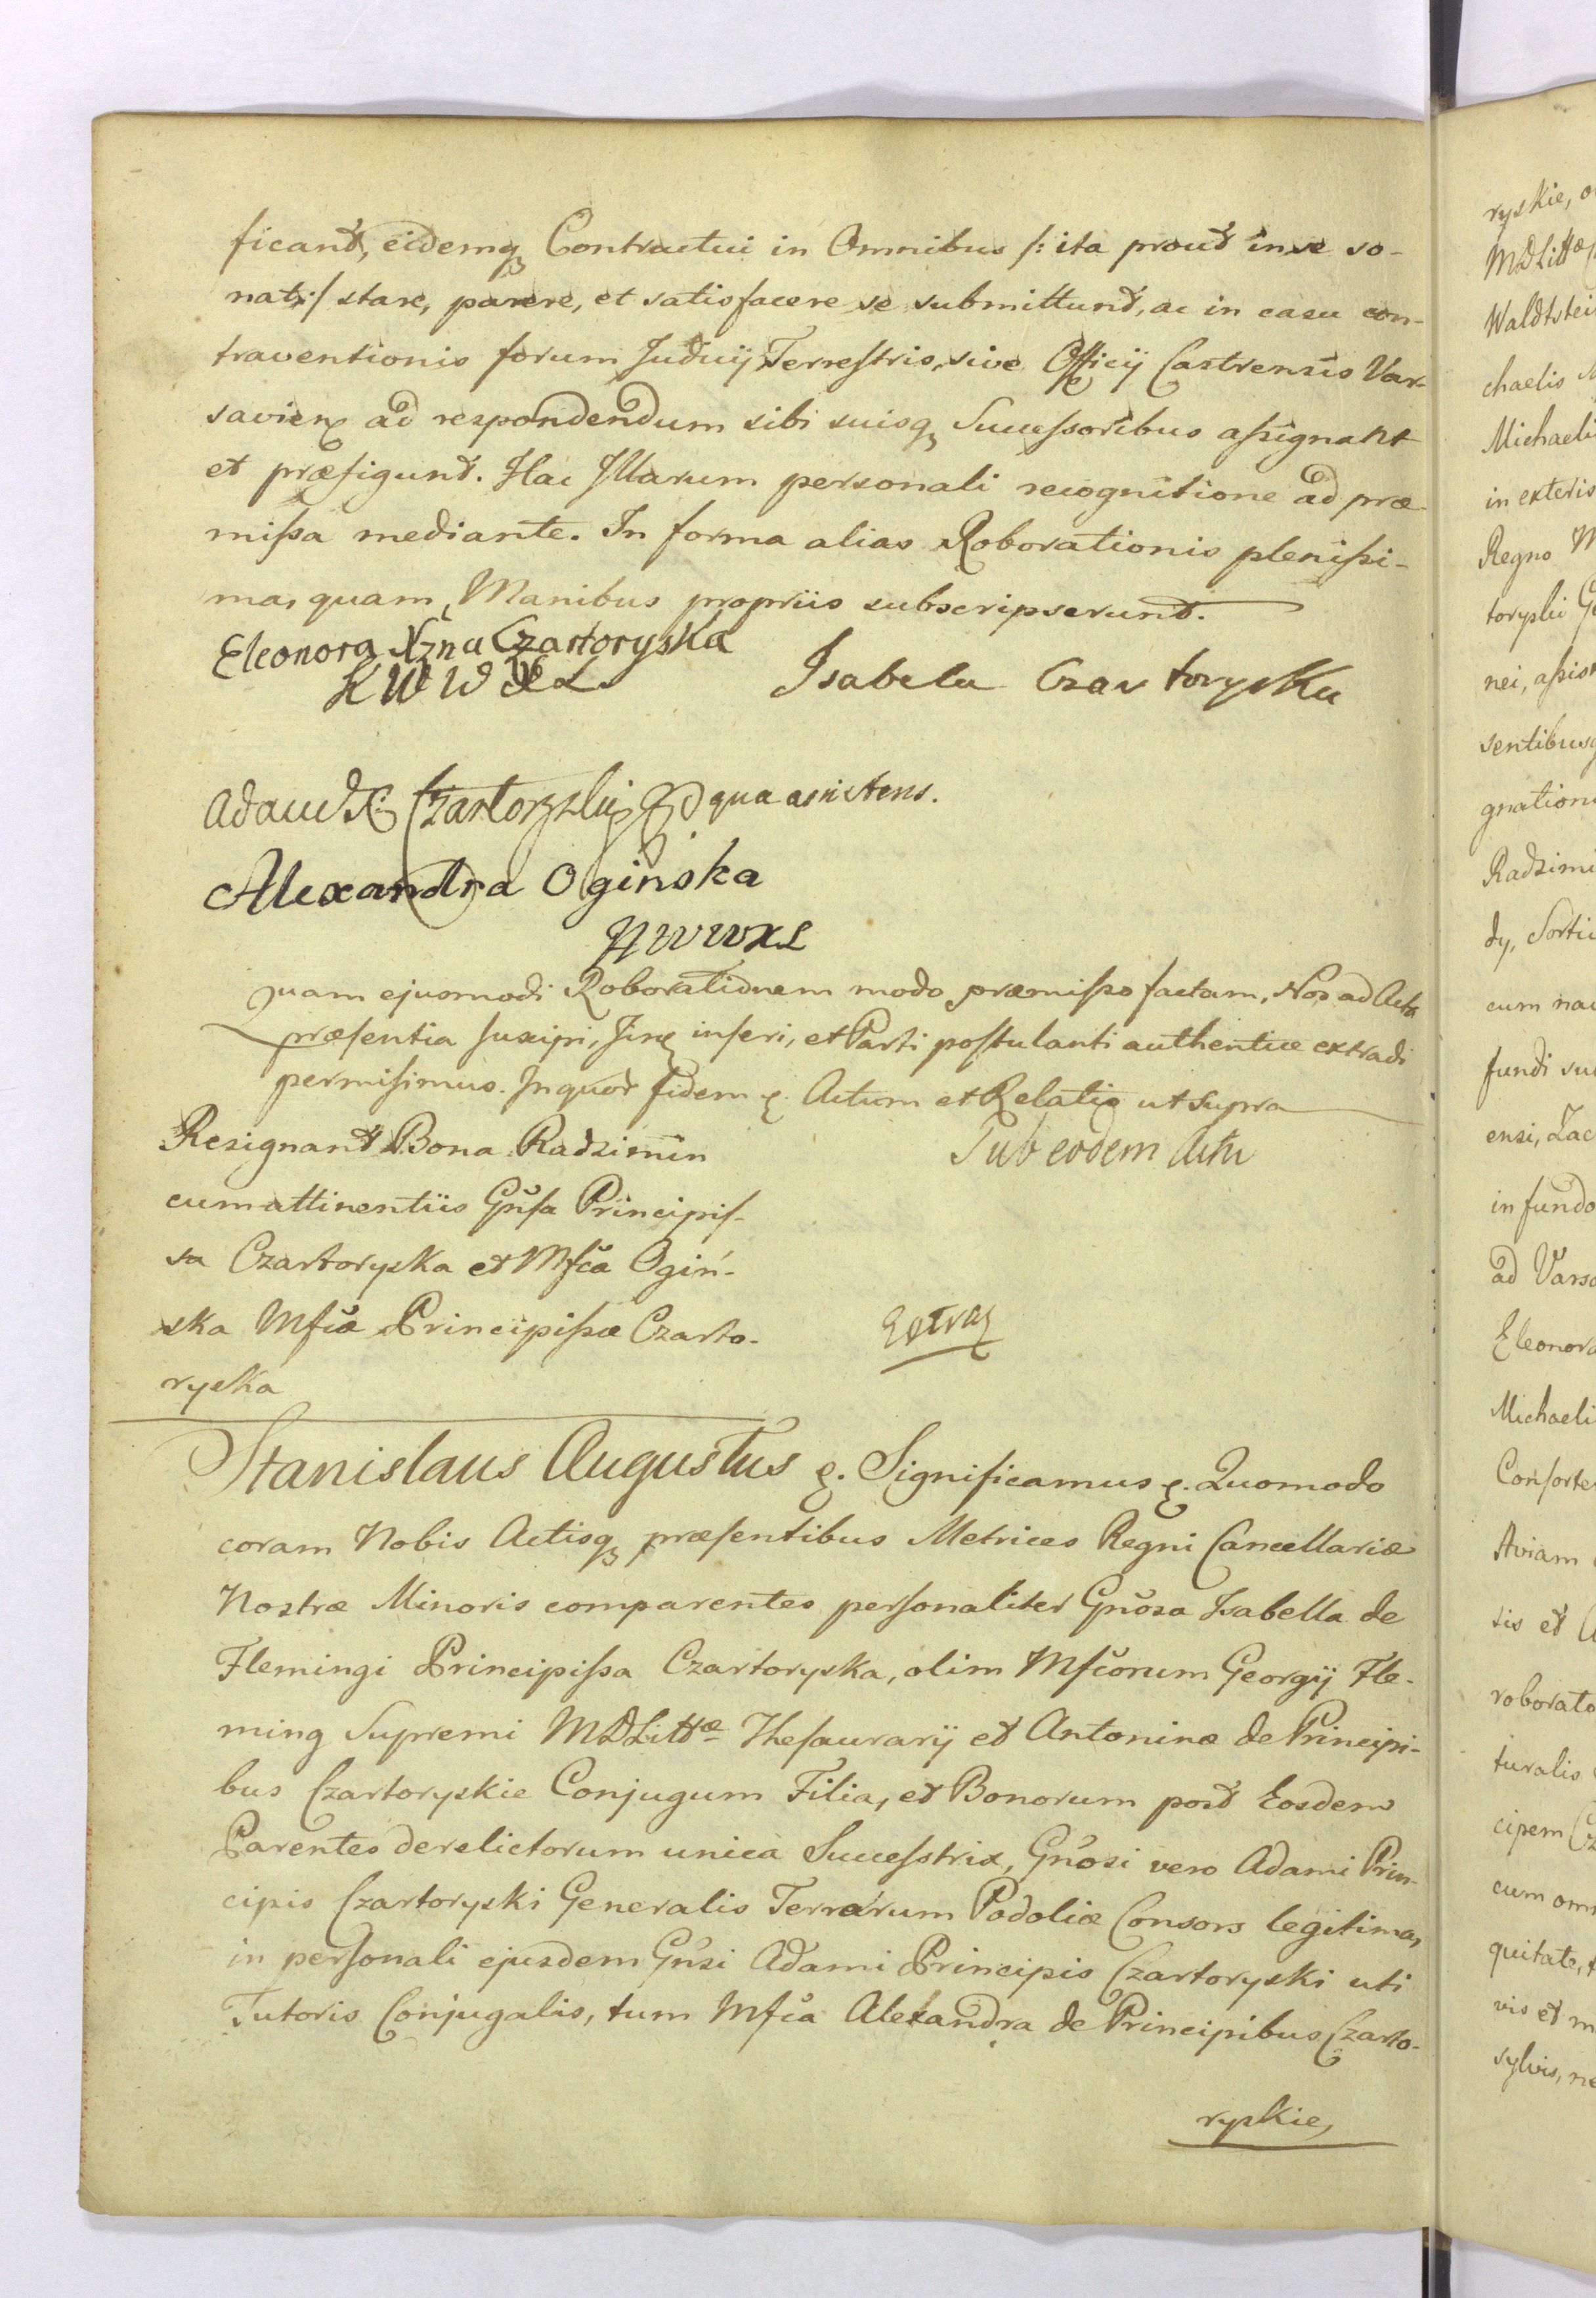 ficant, eidemq Contractui in Omnibus /: ita prout in se so-
nat :/ stare, parere, et satisfacere se submittunt, ac in casu con-
traventionis forum Judicij Terrestris, sive Officij Castrensis Var-
savien ad respondendum sibi suisq Successoribus assignant
et præfigunt. Hac Illarum personali recognitione ad præ-
missa mediante. In forma alias Roborationis plenissi-
ma, quam Manibus propriis subscripserunt.
Eleonora Xzna Czartoryska
K W W X L
Isabela Czartoryska
Adam X: Czartoryski qua assistens.
Alexandra Oginska
HWWXL
Quam ejusmodi Roborationem modo præmisso factam, Nos ad Acta
præsentia suscipi, inseri, et Parti postulanti authentice extradi
permisimus. In quor fidem Actum et Relatio ut supra
Resignant Bona Radzimin
cum attinentiis Gnsa Principis-
sa Czartoryska et Mfca Ogiń-
ska Mfcæ Principissæ Czarto-
ryska
Sub eodem Actu
Extraz
Stanislaus Augustus &. Significamus &. Quomodo
coram Nobis Actisq præsentibus Metrices Regni Cancellariæ
Nostræ Minoris comparentes personaliter Gnosa Isabella de
Flemingi Principissa Czartoryska, olim Mfcorum Georgij Fle-
ming Supremi MDLittæ Thesaurarij et Antoninæ de Principi-
bus Czartoryskie Conjugum Filia, et Bonorum post Eosdem
Parentes derelictorum unica Successtrix, Gnosi vero Adami Prin-
cipis Czartoryski Generalis Terrarum Podoliæ Consors legitima,
in personali ejusdem Gnsi Adami Principis Czartoryski uti
Tutoris Conjugalis, tum Mfca Alexandra de Principibus Czarto-
ryskie,
ryskie,
MDLittæ
chaelis
in exteris
Regno
sentibusq
dy,
fundi
in fundo
Eleonora
Michaeli
Aviam
sis et
turalis
cipem
quitate,
vis et
sylvis,